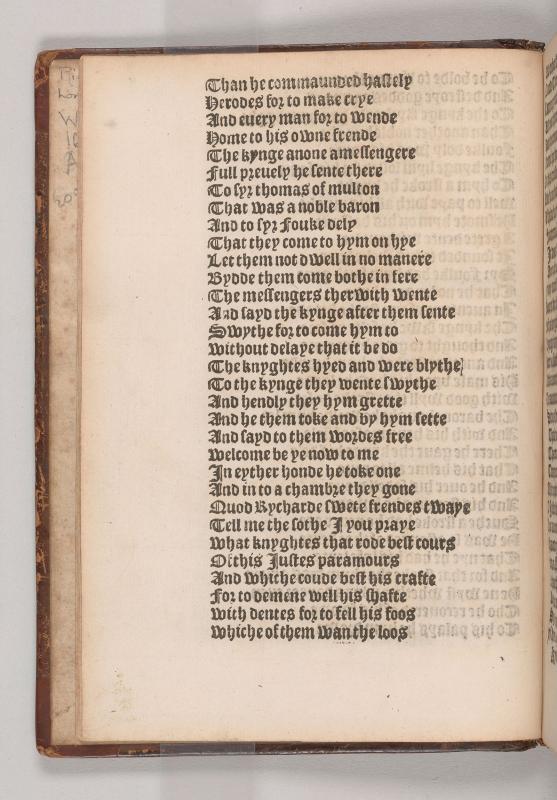 Than he commaunded hastely
Herodes for to make crye
And euery man for to wende
Home to his owne frende
The kynge anone a messengere
Full preuely he sente there
To syr thomas of multon
That was a noble baron
And to syr Fouke dely
That they come to hym on hye
Let them not dwell in no manere
Bydde them come bothe in fere
The messengers therwith wente
And sayd the kynge after them sente
Swythe for to come hym to
without delaye that it be do
The knyghtes hyed and were blythe
To the kynge they wente swythe
And hendly they hym grette
And he them toke and by hym sette
And sayd to them wordes free
welcome be ye now to me
In eyther honde he toke one
And in to a chambre they gone
Quod Rycharde swete frendes twaye
Tell me the sothe I you praye
what knyghtes that rode best cours
Of this Justes paramours
And whiche coude best his crafte
For to demene well his shafte
with dentes for to fell his foos
whiche of them wan the loos